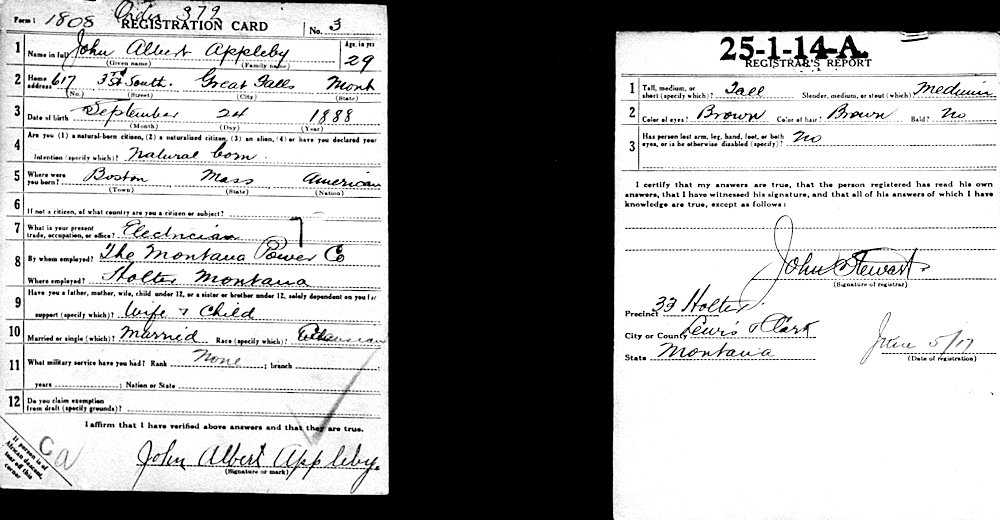 Form 1 1808 Order 379 REGISTRATION CARD No. 3
1 Name in full John Albert Appleby Age, in yrs 29
(Given name) (Family name)
2 Home address 617 3rd South. Great Falls Mont
(No.) (Street) (City) (State)
3 Date of birth September 24 1888
(Month) (Day) (Year)
4 Are you (1) a natural-born citizen, (2) a naturalized citizen, (3) an alien, (4) or have you declared your
intention (specify which)? Natural born.
5 Where were you born? Boston Mass American
(Town) (State) (Nation)
6 If not a citizen, of what country are you a citizen or subject?
7 What is your present trade, occupation, or office? Electrician
8 By whom employed? The Montana Power Co
Where employed? Holter Montana
9 Have you a father, mother, wife, child under 12, or a sister or brother under 12, solely dependent on you for
support (specify which)? Wife & Child
10 Married or single (which)? Married Race (specify which)?
11 What military service have you had? Rank None ; branch
years ; Nation or State
12 Do you claim exemption from draft (specify grounds)?
I affirm that I have verified above answers and that they are true.
John Albert Appleby.
(Signature or mark)
If person is of
African descent,
tear off this
corner
Ca
25-1-14-A.
REGISTRAR'S REPORT
1 Tall, medium, or short (specify which)? Tall Slender, medium, or stout (which)? Medium
2 Color of eyes? Brown Color of hair? Brown Bald? No
3 Has person lost arm, leg, hand, foot, or both eyes, or is he otherwise disabled (specify)? No
I certify that my answers are true, that the person registered has read his own
answers, that I have witnessed his signature, and that all of his answers of which I have
knowledge are true, except as follows:
John Stewart
(Signature of registrar)
Precinct 33 Holter
City or County Lewis & Clark
State Montana June 5/17
(Date of registration)